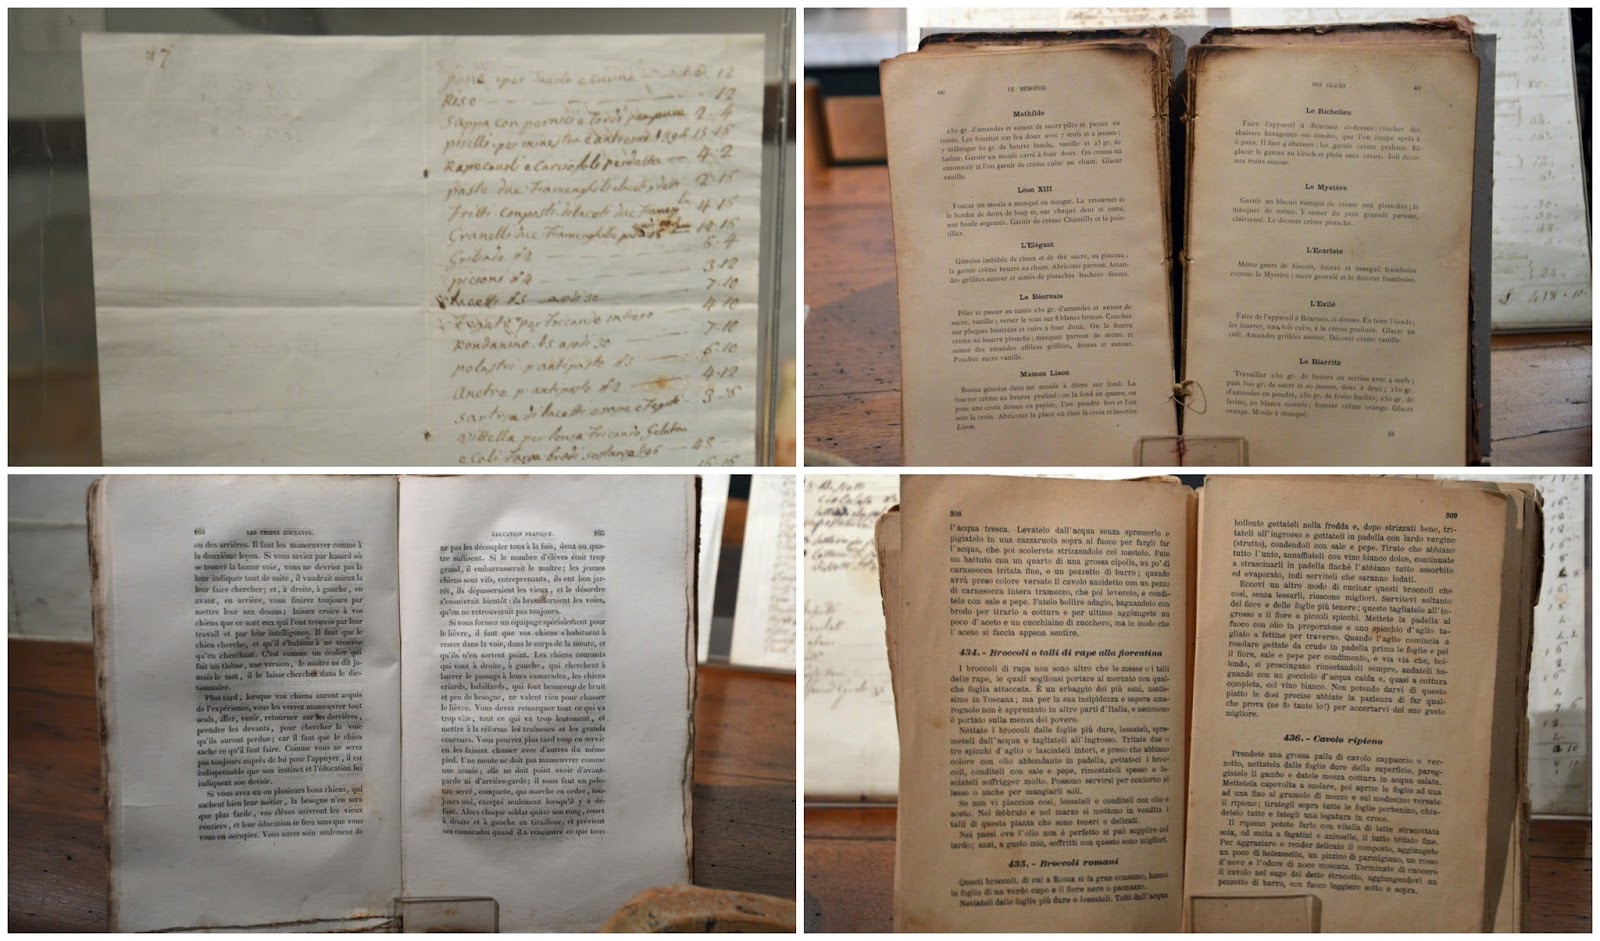 pane per Tavola e Cucina
12
Riso
12
Suppa con pernici e Tordi
2. 4
piselli per minestra
Rape
e Carciofoli
4. 2
paste due
2. 15
Fritti composti di laceti due
4. 15
Granelli due
5. 4
3. 12
piccioni
7. 10
4. 10
per Fricandò intero
7. 10
6. 10
polastri p antipasto
4. 12
Anetre p antipasto
Vittella per lonza Fricandò Gelatina
LE MÉMORIAL
Mathilde
250 gr. d'amandes et autant de sucre pilés et passés au
tamis. Les fouetter sur feu doux avec 7 œufs et 2 jaunes ;
y mélanger 60 gr. de beurre fondu, vanille et 25 gr. de
farine. Garnir un moule carré à four doux. On creuse en
entonnoir et l'on garnit de crème cuite au rhum. Glacer
vanille.
Léon XIII
Foncer un moule à manqué en nougat. La retourner et
le border de dents de loup et, sur chaque dent et autre,
une boule argentée. Garnir de crème Chantilly et la poin-
tiller.
L'Elégant
Génoise imbibée de rhum et de thé sucré, au pinceau ;
la garnir crème beurre au rhum. Abricoter partout. Aman-
des grillées autour et semis de pistaches hachées dessus.
Le Béarnais
Piler et passer au tamis 250 gr. d'amandes et autant de
sucre, vanille ; verser le tout sur 8 blancs fermes. Coucher
sur plaques beurrées et cuire à four doux. On le fourre
crème au beurre pistache ; masquer partout de même et
semer des amandes effilées grillées, dessus et autour.
Poudrer sucre vanille.
Maman Lison
Bonne génoise dans un moule à dôme sur fond. La
fourrer crème au beurre praliné ; on la fend en quatre, on
pose une croix dessus en papier, l'on poudre fort et l'on
sort la croix. Abricoter la place où était la croix et inscrire
Lison.
DES GLACES
Le Richelieu
Faire l'appareil à Béarnais ci-dessus ; coucher des
abaisses hexagones ou rondes, que l'on coupe après à
6 pans. Il faut 4 abaisses ; les garnir crème pralinée. Et
glacer le gateau au kirsch et plein sans creux. Joli décor
aux fruits autour.
Le Mystère
Garnir un biscuit manqué de crème aux pistaches ; le
masquer de même. Y semer du petit granulé partout,
clairsemé. Le décorer crème pistache.
L'Ecarlate
Même genre de biscuit, fourré et masqué framboise
comme le Mystère ; sucre granulé et le décorer framboise.
L'Exilé
Faire de l'appareil à Béarnais, ci-dessus. En faire 3 fonds ;
les fourrer, une fois cuits, à la crème pralinée. Glacer au
café. Amandes grillées autour. Décorer crème vanille.
Le Biarritz
Travailler 250 gr. de beurre en terrine avec 4 œufs ;
puis 300 gr. de sucre et 20 jaunes, deux à deux ; 250 gr.
d'amandes en poudre, 250 gr. de fruits hachés, 250 gr. de
farine, 20 blancs montés ; fourrer crème orange. Glacer
orange. Moule à manqué.
$ 418. 10.
464
LES CHIENS COURANTS.
on des arrières. Il faut les manœuvrer comme à
la deuxième leçon. Si vous saviez par hasard où
se trouve la bonne voie, vous ne devriez pas la
leur indiquer tout de suite, il vaudrait mieux la
leur faire chercher ; et, à droite, à gauche, en
avant, en arrière, vous finirez toujours par
mettre leur nez dessus ; laissez croire à vos
chiens que ce sont eux qui l'ont trouvée par leur
travail et par leur intelligence. Il faut que le
chien cherche, et qu'il s'habitue à ne trouver
qu'en cherchant. C'est comme un écolier qui
fait un thème, une version, le maître ne dit ja-
mais le mot, il le laisse chercher dans le dic-
tionnaire.
Plus tard, lorsque vos chiens auront acquis
de l'expérience, vous les verrez manœuvrer tout
seuls, aller, venir, retourner sur les derrières,
prendre les devants, pour chercher la voie
qu'ils auront perdue ; car il faut que le chien
sache ce qu'il faut faire. Comme vous ne serez
pas toujours auprès de lui pour l'appuyer, il est
indispensable que son instinct et l'éducation lui
indiquent son devoir.
Si vous avez un ou plusieurs bons chiens, qui
sachent bien leur métier, la besogne n'en sera
que plus facile, vos élèves suivront les vieux
routiers, et leur éducation se fera sans que vous
vous en occupiez. Vous aurez soin seulement de
ÉDUCATION PRATIQUE.
465
ne pas les découpler tous à la fois, deux ou qua-
tre suffisent. Si le nombre d'élèves était trop
grand, il embarrasserait le maître ; les jeunes
chiens sont vifs, entreprenants, ils ont bon jar-
rêt, ils dépasseraient les vieux, et le désordre
s'ensuivrait bientôt : ils brouilleraient les voies,
qu'on ne retrouverait pas toujours.
Si vous formez un équipage spécialement pour
le lièvre, il faut que vos chiens s'habituent à
rester dans la voie, dans le corps de la meute, et
qu'ils n'en sortent point. Les chiens courants
qui vont à droite, à gauche, qui cherchent à
barrer le passage à leurs camarades, les chiens
criards, babillards, qui font beaucoup de bruit
et peu de besogne, ne valent rien pour chasser
le lièvre. Vous devez remarquer tout ce qui va
trop vite, tout ce qui va trop lentement, et
mettre à la réforme les traîneurs et les grands
coureurs. Vous pourrez plus tard vous en servir
en les faisant chasser avec d'autres du même
pied. Une meute ne doit pas manœuvrer comme
une armée ; elle ne doit point avoir d'avant-
garde ni d'arrière-garde ; il nous faut un pelo-
ton serré, compacte, qui marche en ordre, tou-
jours uni, excepté seulement lorsqu'il y a dé-
faut. Alors chaque soldat quitte son rang, court
à droite et à gauche en tirailleur, et prévient
ses camarades quand il a rencontré ce que tous
308
l'acqua fresca. Levatelo dall'acqua senza spremerlo e
pigiatelo in una cazzaruola sopra al fuoco per fargli far
l'acqua, che poi scolerete strizzandolo col mestolo. Fate
un battuto con un quarto di una grossa cipolla, un po' di
carnesecca tritata fine, e un pezzetto di burro ; quando
avrà preso colore versate il cavolo anzidetto con un pezzo
di carnesecca intera tramezzo, che poi leverete, e condi-
telo con sale e pepe. Fatelo bollire adagio, bagnandolo con
brodo per tirarlo a cottura e per ultimo aggiungete un
poco d'aceto e un cucchiaino di zucchero, ma in modo che
l'aceto si faccia appena sentire.
434. - Broccoli o talli di rape alla fiorentina
I broccoli di rapa non sono altro che le messe o i talli
delle rape, le quali soglionsi portare al mercato con qual-
che foglia attaccata. È un erbaggio dei più sani, usatis-
simo in Toscana ; ma per la sua insipidezza e sapore ama-
rognolo non è apprezzato in altre parti d'Italia, e nemmeno
è portato sulla mensa del povero.
Nettate i broccoli dalle foglie più dure, lessateli, spre-
meteli dall'acqua e tagliateli all'ingrosso. Tritate due o
tre spicchi d'aglio o lasciateli interi, e preso che abbiano
colore con olio abbondante in padella, gettateci i broc-
coli, conditeli con sale e pepe, rimestateli spesso e la-
sciateli soffriggere molto. Possono servirsi per contorno al
lesso o anche per mangiarli soli.
Se non vi piaccion così, lessateli e conditeli con olio e
aceto. Nel febbraio e nel marzo si mettono in vendita i
talli di questa pianta che sono teneri e delicati.
Nei paesi ove l'olio non è perfetto si può supplire col
lardo ; anzi, a gusto mio, soffritti con questo sono migliori.
435. - Broccoli romani
Questi broccoli, di cui a Roma si fa gran consumo, hanno
le foglie di un verde cupo e il fiore nero o paonazzo.
Nettateli dalle foglie più dure e lessateli. Tolti dall'acqua
309
bollente gettateli nella fredda e, dopo strizzati bene, tri-
tateli all'ingrosso e gettateli in padella con lardo vergine
(strutto), condendoli con sale e pepe. Tirato che abbiano
tutto l'unto, annaffiateli con vino bianco dolce, continuate
a strascinarli in padella finchè l'abbiano tutto assorbito
ed evaporato, indi serviteli che saranno lodati.
Eccovi un altro modo di cucinar questi broccoli che
così, senza lessarli, riescono migliori. Servitevi soltanto
del fiore e delle foglie più tenere ; queste tagliatele all'in-
grosso e il fiore a piccoli spicchi. Mettete la padella al
fuoco con olio in proporzione e uno spicchio d'aglio ta-
gliato a fettine per traverso. Quando l'aglio comincia a
rosolare gettate da crude in padella prima le foglie e poi
il fiore, sale e pepe per condimento, e via via che, bol-
lendo, si prosciugano rimestandoli sempre, andateli ba-
gnando con un gocciolo d'acqua calda e, quasi a cottura
completa, col vino bianco. Non potendo darvi di questo
piatto le dosi precise abbiate la pazienza di far qual-
che prova (ne fo tante io!) per accertarvi del suo gusto
migliore.
436. - Cavolo ripieno
Prendete una grossa palla di cavolo cappuccio e ver-
zotto, nettatela dalle foglie dure della superficie, pareg-
giatele il gambo e datele mezza cottura in acqua salata.
Mettetela capovolta a scolare, poi aprite le foglie ad una
ad una fino al grumolo di mezzo e sul medesimo versate
il ripieno ; tirategli sopra tutte le foglie perbenino, chiu-
detelo tutto e fategli una legatura in croce.
Il ripieno potete farlo con vitella di latte stracottata
sola, od unita a fegatini e animelle, il tutto tritato fine.
Per aggraziare e render delicato il composto, aggiungete
un poco di balsamella, un pizzico di parmigiano, un rosso
d'uovo e l'odore di noce moscata. Terminate di cuocere
il cavolo nel sugo del detto stracotto, aggiungendovi un
pezzetto di burro, con fuoco leggiero sotto e sopra.